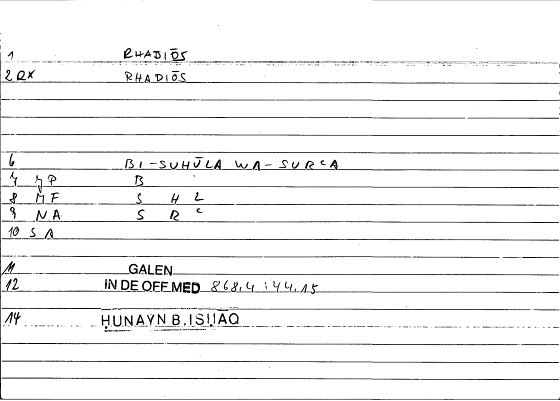 1 RHADIŌS
2 DX RHADIŌS
6 BI-SUHŪLA WA-SURʿA
7 MP B
8 MF S H L
9 NA S R ʿ
10 S A
11 GALEN
12 IN DE OFF MED 868,4 : 44,15
14 HUNAYN B. ISHAQ